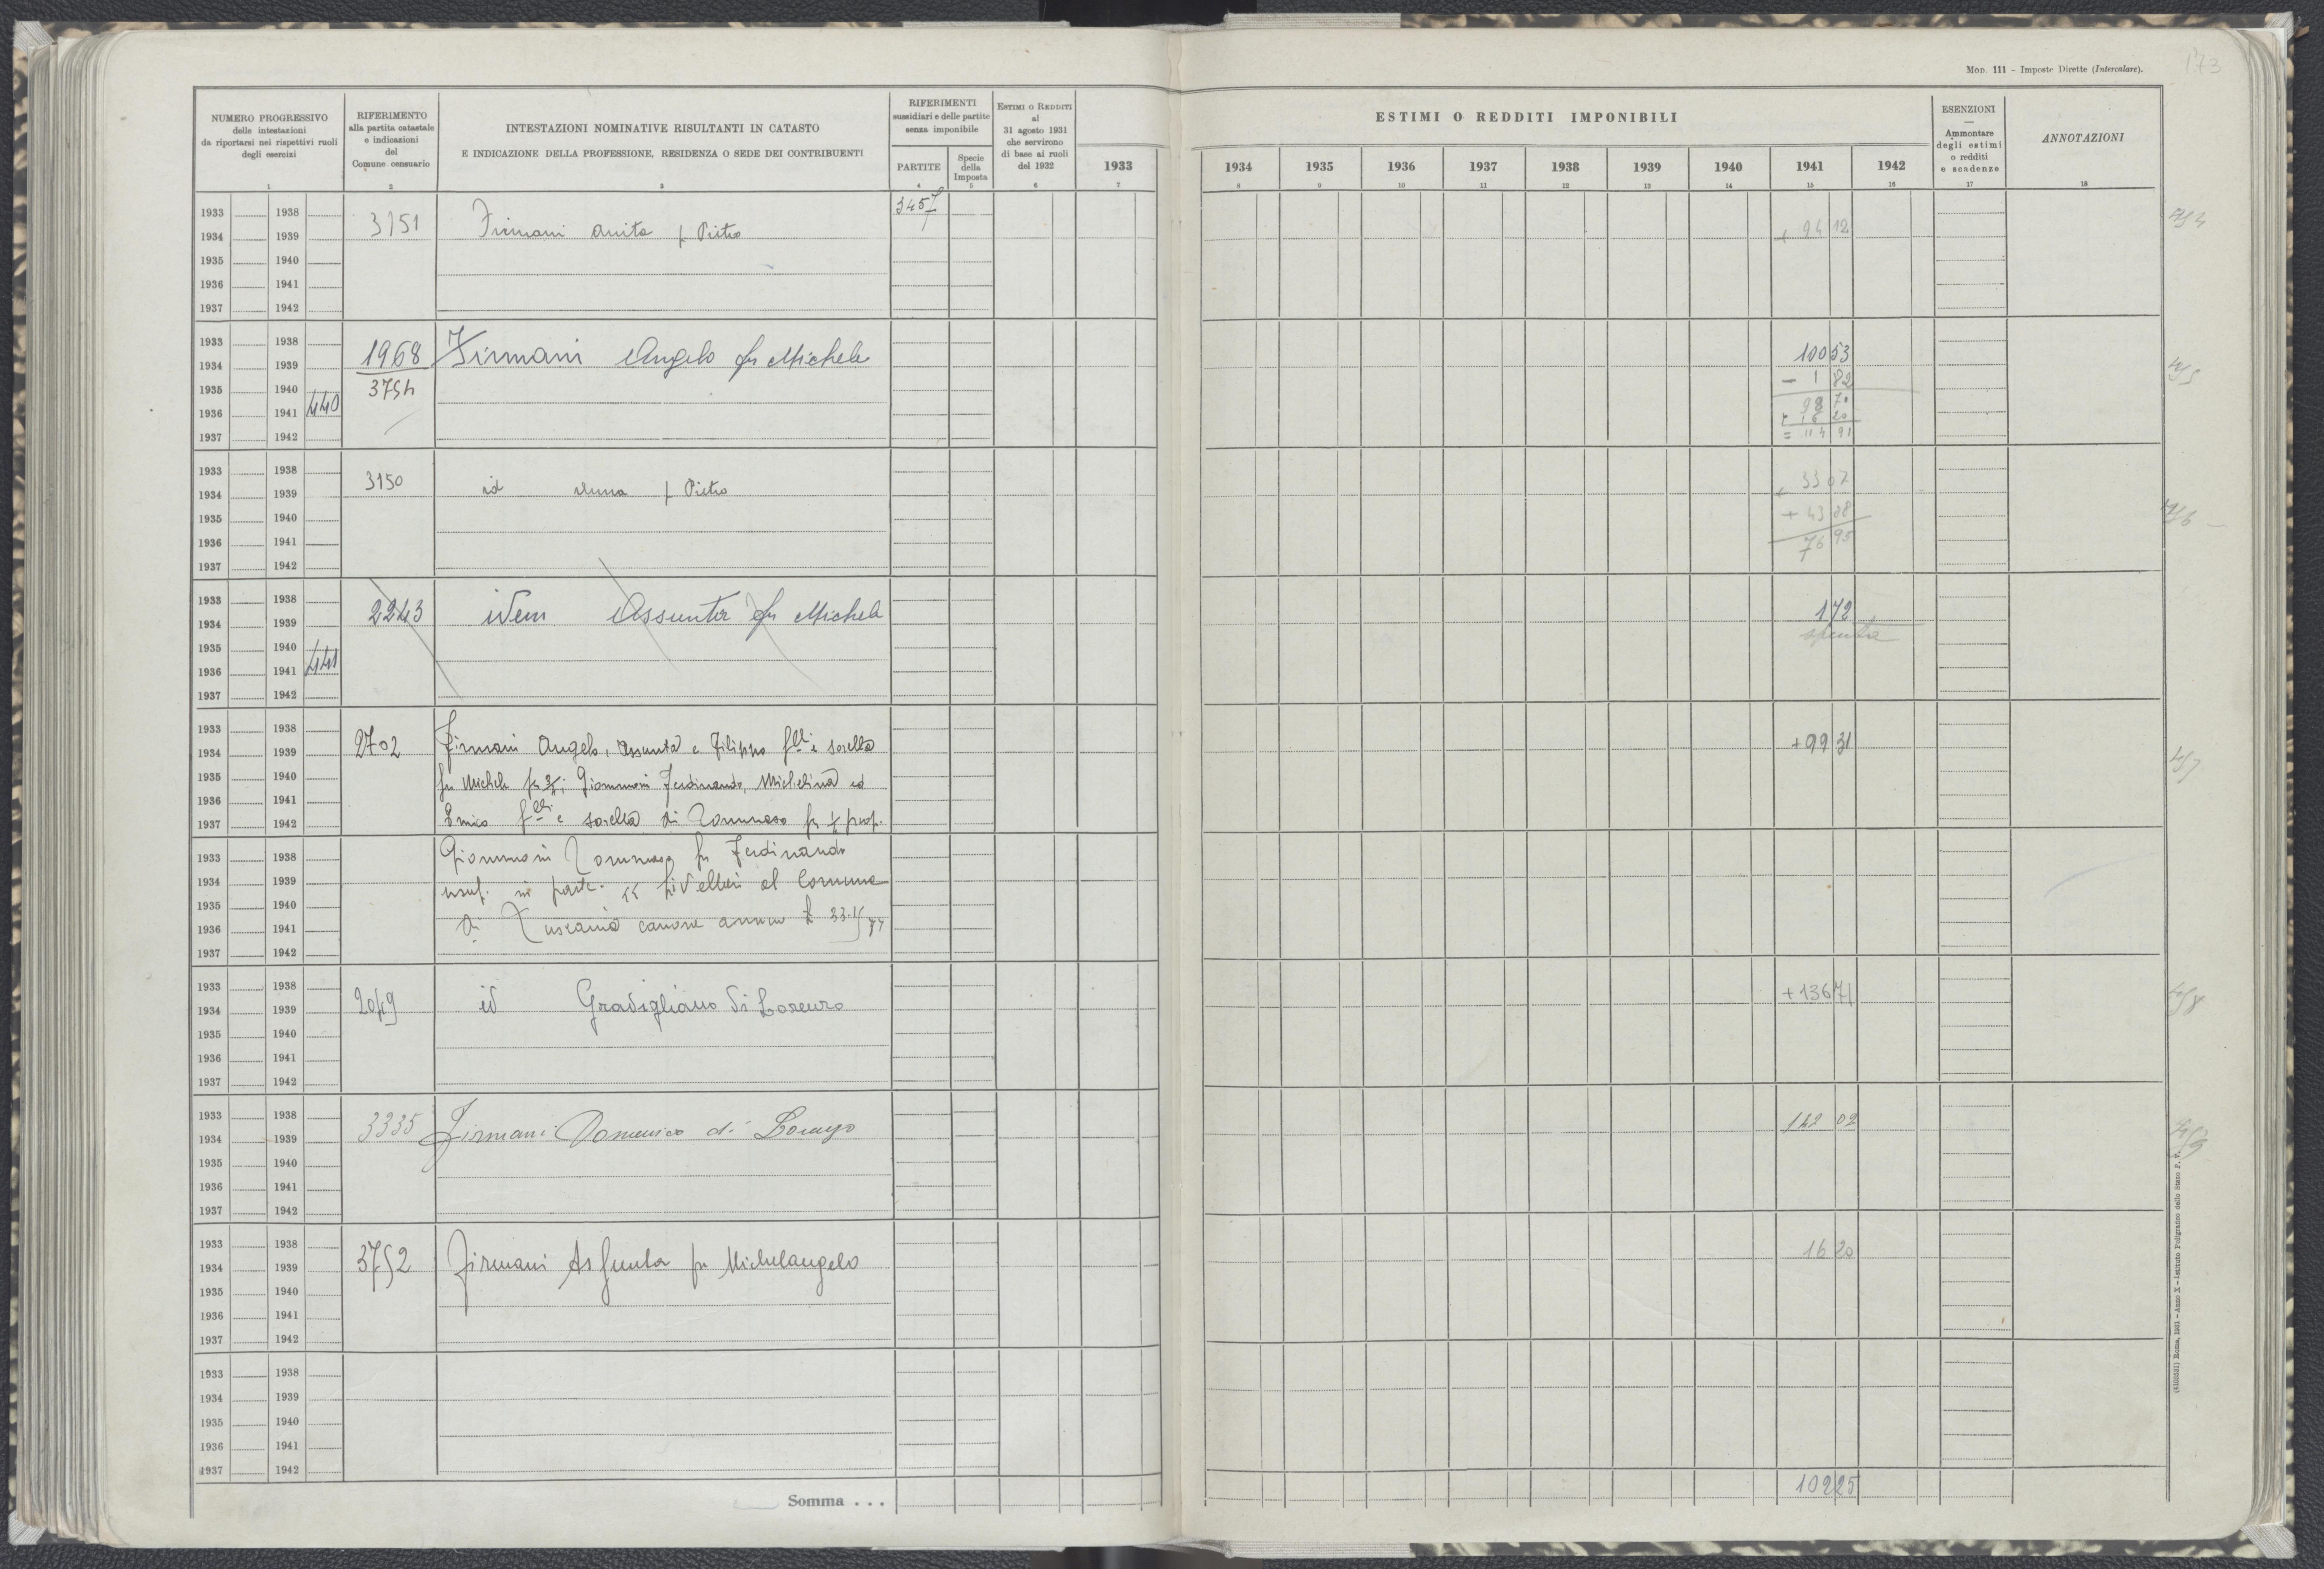 173
MOD. 111 - Imposte Dirette (Intercalare).
NUMERO PROGRESSIVO
delle intestazioni
da riportarsi nei rispettivi ruoli
degli esercizi
1
RIFERIMENTO
alla partita catastale
e indicazioni
del
Comune censuario
2
INTESTAZIONI NOMINATIVE RISULTANTI IN CATASTO
E INDICAZIONE DELLA PROFESSIONE, RESIDENZA O SEDE DEI CONTRIBUENTI
3
RIFERIMENTI
sussidiari e delle partite
senza imponibile
PARTITE
4
Specie
della
Imposta
5
ESTIMI O REDDITI
al
31 agosto 1931
che servirono
di base ai ruoli
del 1932
6
1933
7
ESTIMI O REDDITI IMPONIBILI
1934 1935 1936 1937 1938 1939 1940 1941 1942
8 9 10 11 12 13 14 15 16
ESENZIONI
—
Ammontare
degli estimi
o redditi
e scadenze
17
ANNOTAZIONI
18
1933 1938
1934 1939
1935 1940
1936 1941
1937 1942
3151 Firmani Anita fu Pietro 3457 + 94 12
1933 1938
1934 1939
1935 1940
1936 1941 440
1937 1942
1968 Firmani Angelo fu Michele 100 53
3754 - 1 82
98 70
+ 16 20
= 114 91
1933 1938
1934 1939
1935 1940
1936 1941
1937 1942
3150 id Anna fu Pietro + 33 07
+ 43 88
76 95
1933 1938
1934 1939
1935 1940
1936 1941 441
1937 1942
2243 idem Assunta fu Michele 1 72
spenta
1933 1938
1934 1939
1935 1940
1936 1941
1937 1942
2702 Firmani Angelo, Assunta e Filippo flli e sorella + 99 31
fu Michele Giammoni Ferdinando, Michelina ed
Enrico flli e sorella di Tommaso prop.
1933 1938
1934 1939
1935 1940
1936 1941
1937 1942
Giommoni Tommaso fu Ferdinando
usuf. in parte. livellari al Comune
di Tuscania canone annuo £ 33.
1933 1938
1934 1939
1935 1940
1936 1941
1937 1942
2049 id Gradigliano di Lorenzo + 136 71
1933 1938
1934 1939
1935 1940
1936 1941
1937 1942
3335 Firmani Domenico di Lorenzo 142 02
1933 1938
1934 1939
1935 1940
1936 1941
1937 1942
3752 Firmani Assunta fu Michelangelo 16 20
1933 1938
1934 1939
1935 1940
1936 1941
1937 1942
Somma . . . 102 25
(4100331) Roma, 1931 - Anno X - Istituto Poligrafico dello Stato P. V.